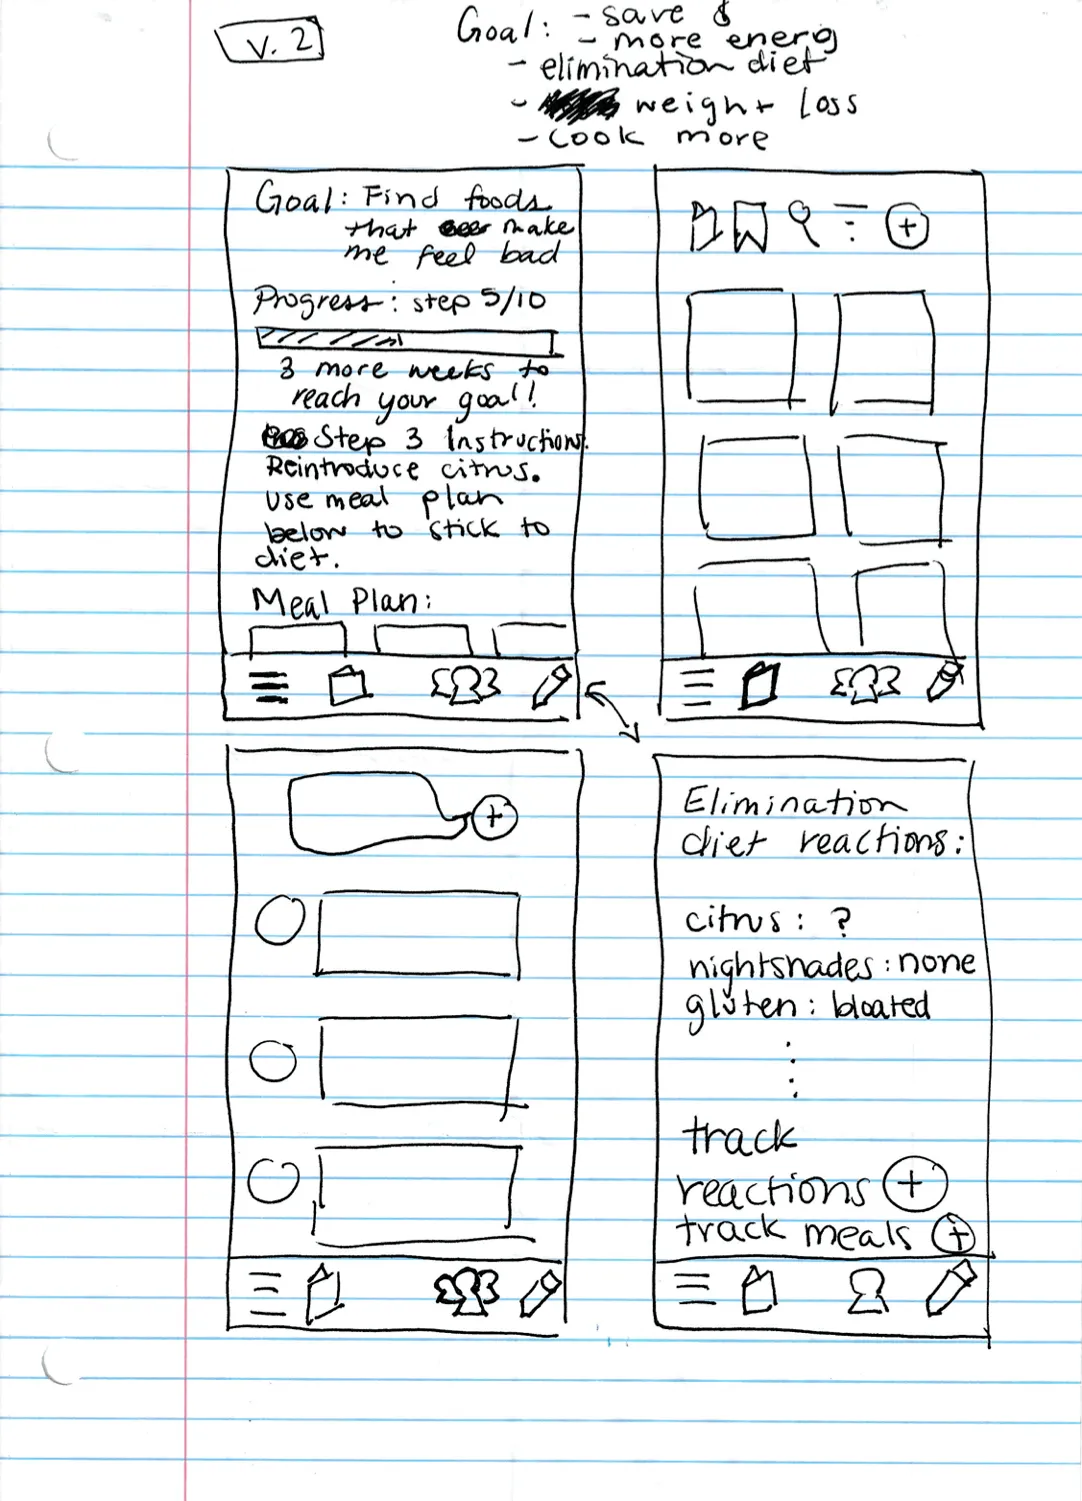 v. 2
Goal: - save $
- more energ
- elimination diet
- weight loss
- cook more
Goal: Find foods
that make
me feel bad
Progress: step 5/10
3 more weeks to
reach your goal!
Step 3 Instructions.
Reintroduce citrus.
Use meal plan
below to stick to
diet.
Meal Plan:
Elimination
diet reactions:
citrus: ?
nightshades: none
gluten: bloated
track
reactions +
track meals +